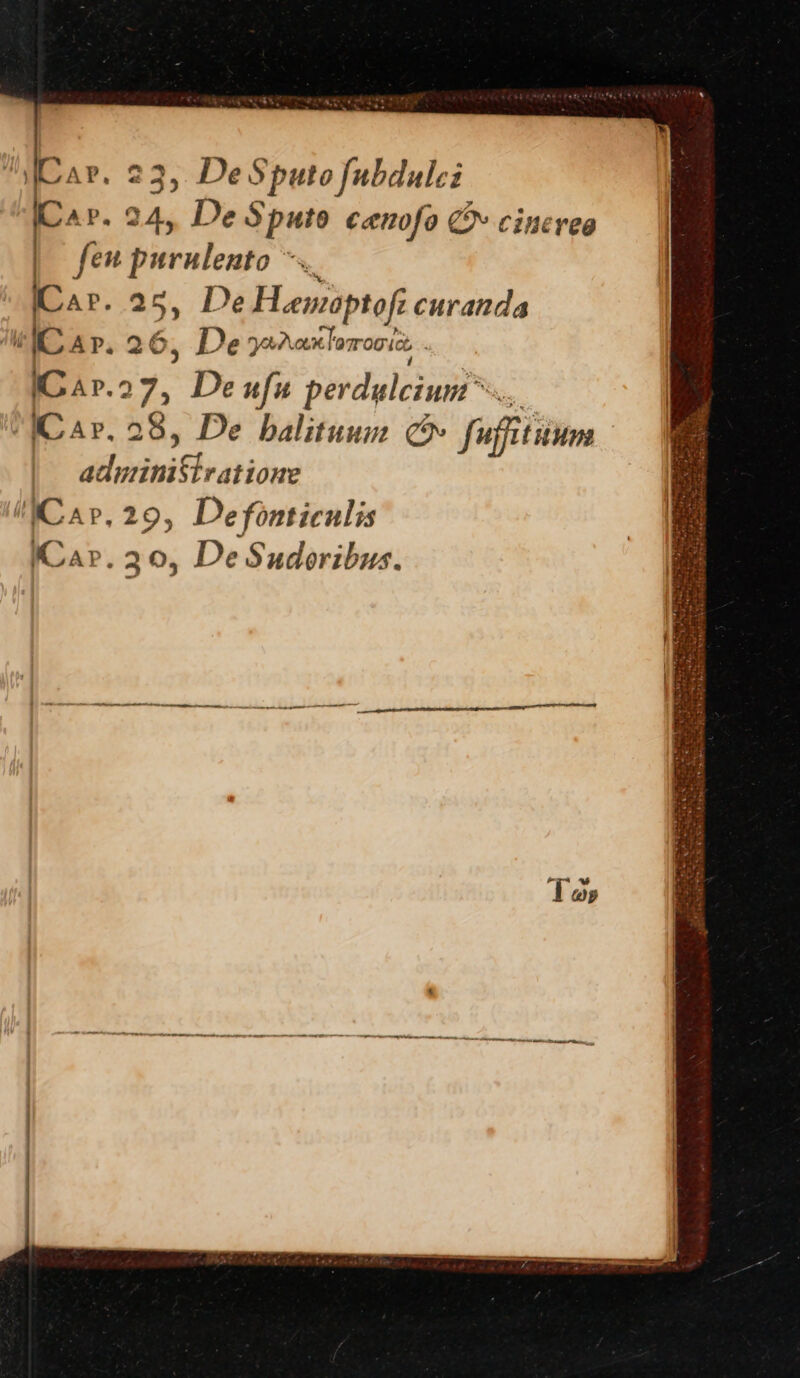 CAP. 23, De Sputo ſubdulci
CAP. 24, De Sputo cænoſo & cinereo
ſeu purulento
CAP. 25, De Hæmoptoſi curanda
CAP. 26, De γαλακτοποσίᾳ.
CAP. 27, De uſu perdulcium
CAP. 28, De halituum & ſuffituum
adminiſtratione
CAP. 29, De fonticulis
CAP. 30, De Sudoribus.
Τῶν